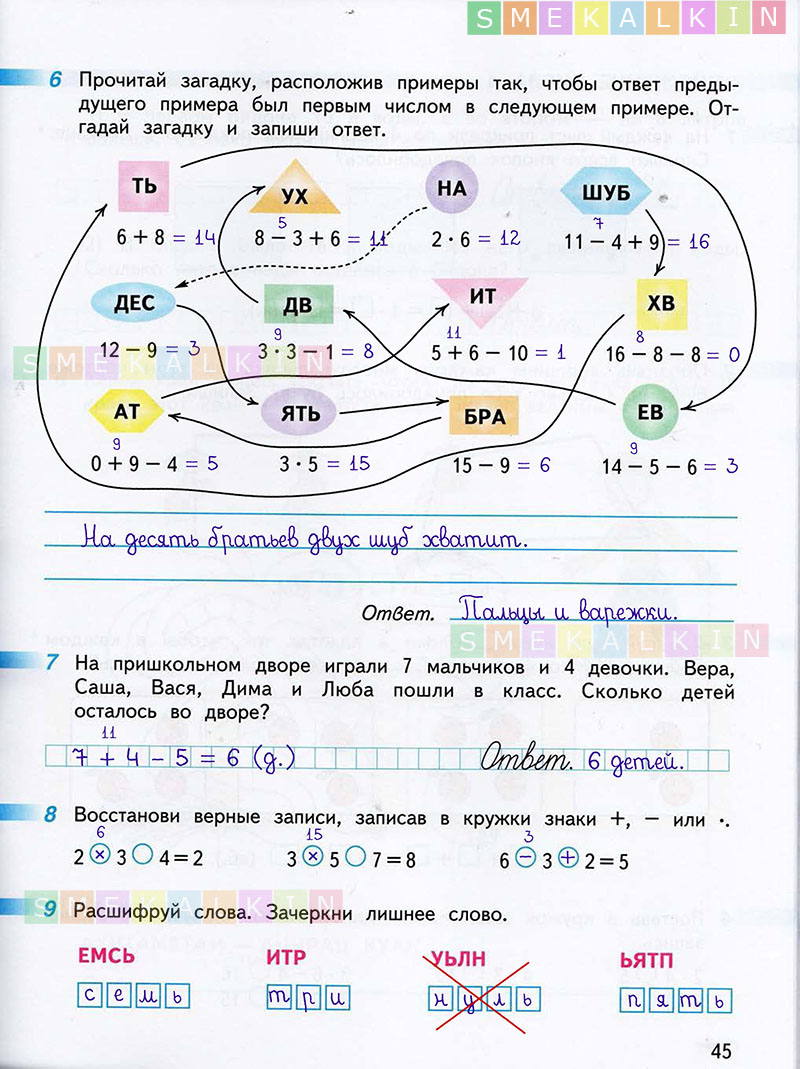 SMEKALKIN
6 Прочитай загадку, расположив примеры так, чтобы ответ преды-
дущего примера был первым числом в следующем примере. От-
гадай загадку и запиши ответ.
ТЬ УХ НА ШУБ
5 7
6 + 8 = 14 8 − 3 + 6 = 11 2 · 6 = 12 11 − 4 + 9 = 16
ДЕС ДВ ИТ ХВ
9 11 8
12 − 9 = 3 3 · 3 − 1 = 8 5 + 6 − 10 = 1 16 − 8 − 8 = 0
SMEKALKIN
АТ ЯТЬ БРА ЕВ
9 9
0 + 9 − 4 = 5 3 · 5 = 15 15 − 9 = 6 14 − 5 − 6 = 3
На десять братьев двух шуб хватит.
Ответ. Пальцы и варежки.
SMEKALKIN
7 На пришкольном дворе играли 7 мальчиков и 4 девочки. Вера,
Саша, Вася, Дима и Люба пошли в класс. Сколько детей
осталось во дворе?
11
7 + 4 − 5 = 6 (д.) Ответ. 6 детей.
8 Восстанови верные записи, записав в кружки знаки +, − или ·.
6 15 3
2 × 3 ○ 4 = 2 3 × 5 ○ 7 = 8 6 − 3 + 2 = 5
SMEKALKIN
9 Расшифруй слова. Зачеркни лишнее слово.
ЕМСЬ ИТР УЬЛН ЬЯТП
семь три нуль пять
45